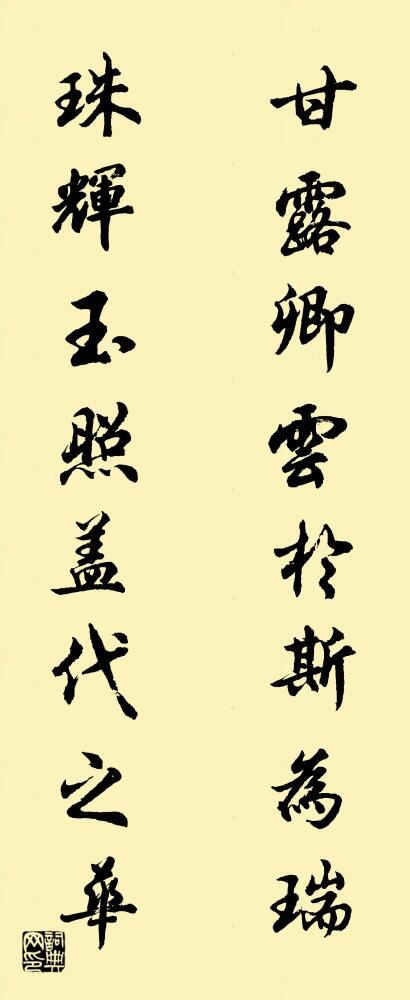 甘露卿雲於斯為瑞
珠輝玉照盖代之華
詞典网印